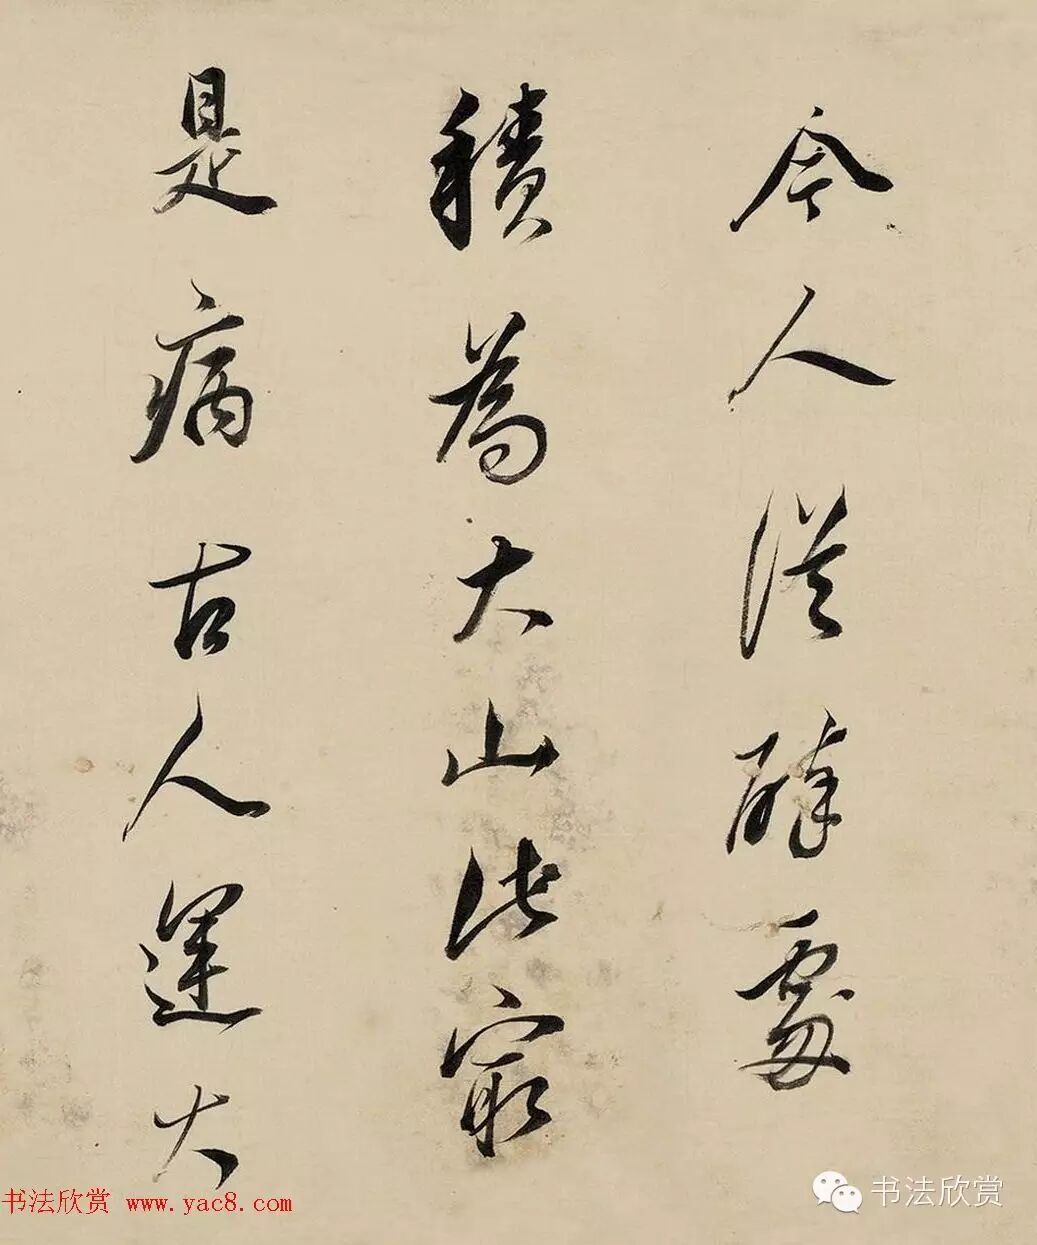 今人從碎處
積為大山此最
是病古人運大
书法欣赏 www.yac8.com
书法欣赏